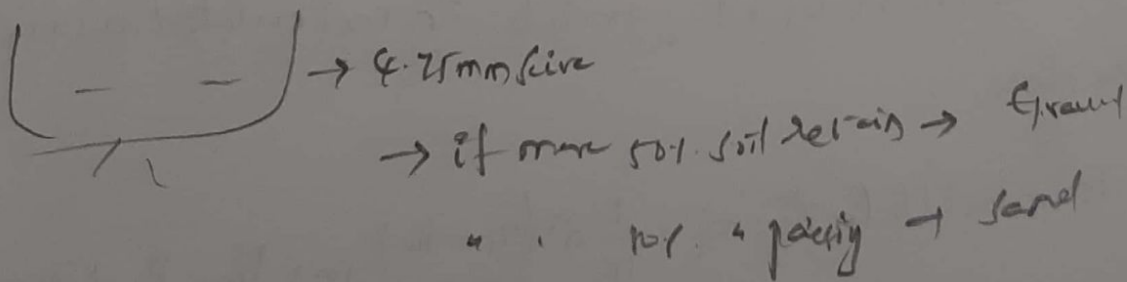 → 4.75mm sive
→ if more 50% soil retain → Gravel
" " 50% " passig → sand